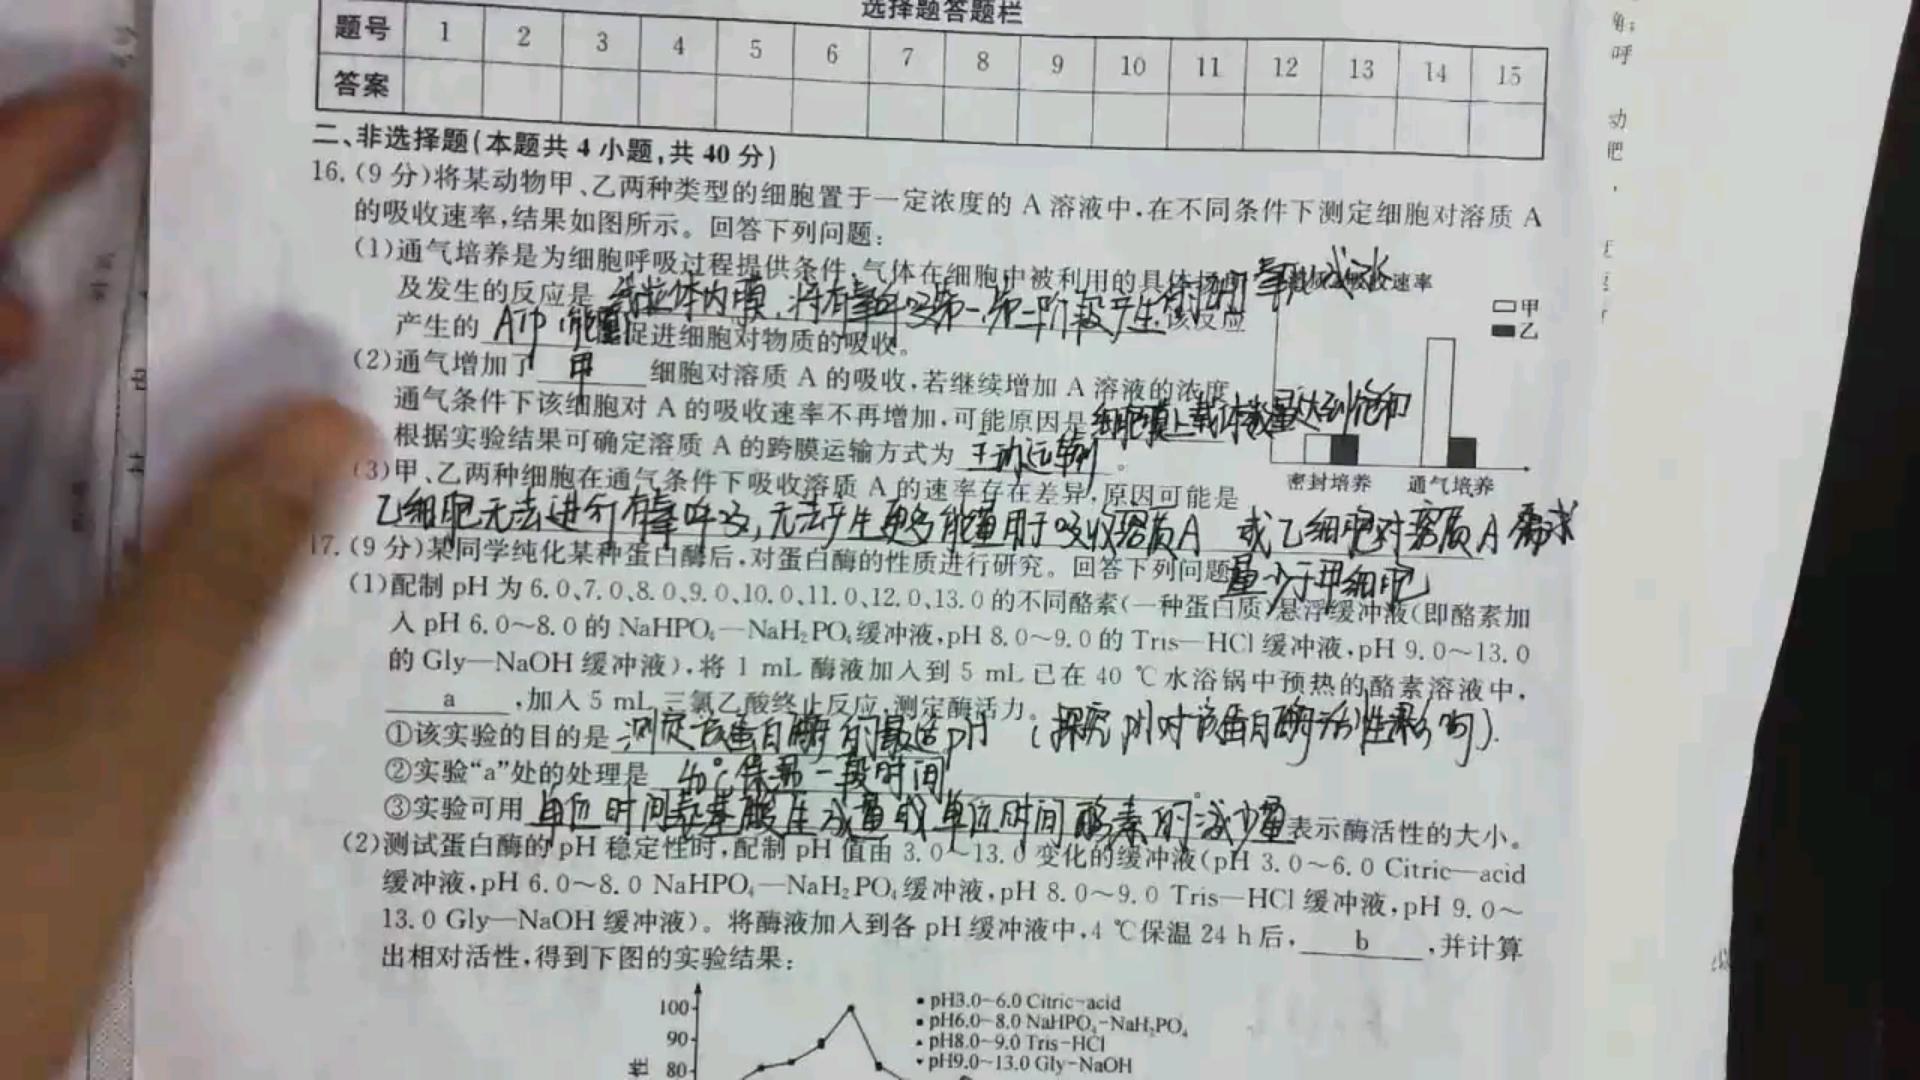 选择题答题栏
题号 1 2 3 4 5 6 7 8 9 10 11 12 13 14 15
答案
二、非选择题(本题共 4 小题,共 40 分)
16.(9 分)将某动物甲、乙两种类型的细胞置于一定浓度的 A 溶液中,在不同条件下测定细胞对溶质 A
的吸收速率,结果如图所示。回答下列问题:
(1)通气培养是为细胞呼吸过程提供条件,气体在细胞中被利用的具体场所
及发生的反应是 线粒体内膜,将有氧呼吸第一、第二阶段产生的[H]与氧气生成水
产生的 ATP(能量) 促进细胞对物质的吸收。
,该反应
吸收速率
甲
乙
(2)通气增加了 甲 细胞对溶质 A 的吸收,若继续增加 A 溶液的浓度
通气条件下该细胞对 A 的吸收速率不再增加,可能原因是 细胞膜上载体数量达到饱和
根据实验结果可确定溶质 A 的跨膜运输方式为 主动运输 。
密封培养 通气培养
(3)甲、乙两种细胞在通气条件下吸收溶质 A 的速率存在差异,原因可能是
乙细胞无法进行有氧呼吸,无法产生更多能量用于吸收溶质A 或乙细胞对溶质A需求
量少于甲细胞
17.(9 分)某同学纯化某种蛋白酶后,对蛋白酶的性质进行研究。回答下列问题
(1)配制 pH 为 6.0、7.0、8.0、9.0、10.0、11.0、12.0、13.0 的不同酪素(一种蛋白质)悬浮缓冲液(即酪素加
入 pH 6.0~8.0 的 NaHPO₄—NaH₂PO₄缓冲液,pH 8.0~9.0 的 Tris—HCl 缓冲液,pH 9.0~13.0
的 Gly—NaOH 缓冲液),将 1 mL 酶液加入到 5 mL 已在 40 ℃水浴锅中预热的酪素溶液中,
a ,加入 5 mL 三氯乙酸终止反应,测定酶活力。
①该实验的目的是 测定该蛋白酶的最适pH (探究pH对该蛋白酶活性影响).
②实验“a”处的处理是 40℃保温一段时间
③实验可用 单位时间氨基酸生成量或单位时间酪素的减少量 表示酶活性的大小。
(2)测试蛋白酶的 pH 稳定性时,配制 pH 值由 3.0~13.0 变化的缓冲液(pH 3.0~6.0 Citric—acid
缓冲液,pH 6.0~8.0 NaHPO₄—NaH₂PO₄缓冲液,pH 8.0~9.0 Tris—HCl 缓冲液,pH 9.0~
13.0 Gly—NaOH 缓冲液)。将酶液加入到各 pH 缓冲液中,4 ℃保温 24 h 后, b ,并计算
出相对活性,得到下图的实验结果:
100
90
80
性
pH3.0~6.0 Citric-acid
pH6.0~8.0 NaHPO₄-NaH₂PO₄
pH8.0~9.0 Tris-HCl
pH9.0~13.0 Gly-NaOH
呼
动
肥